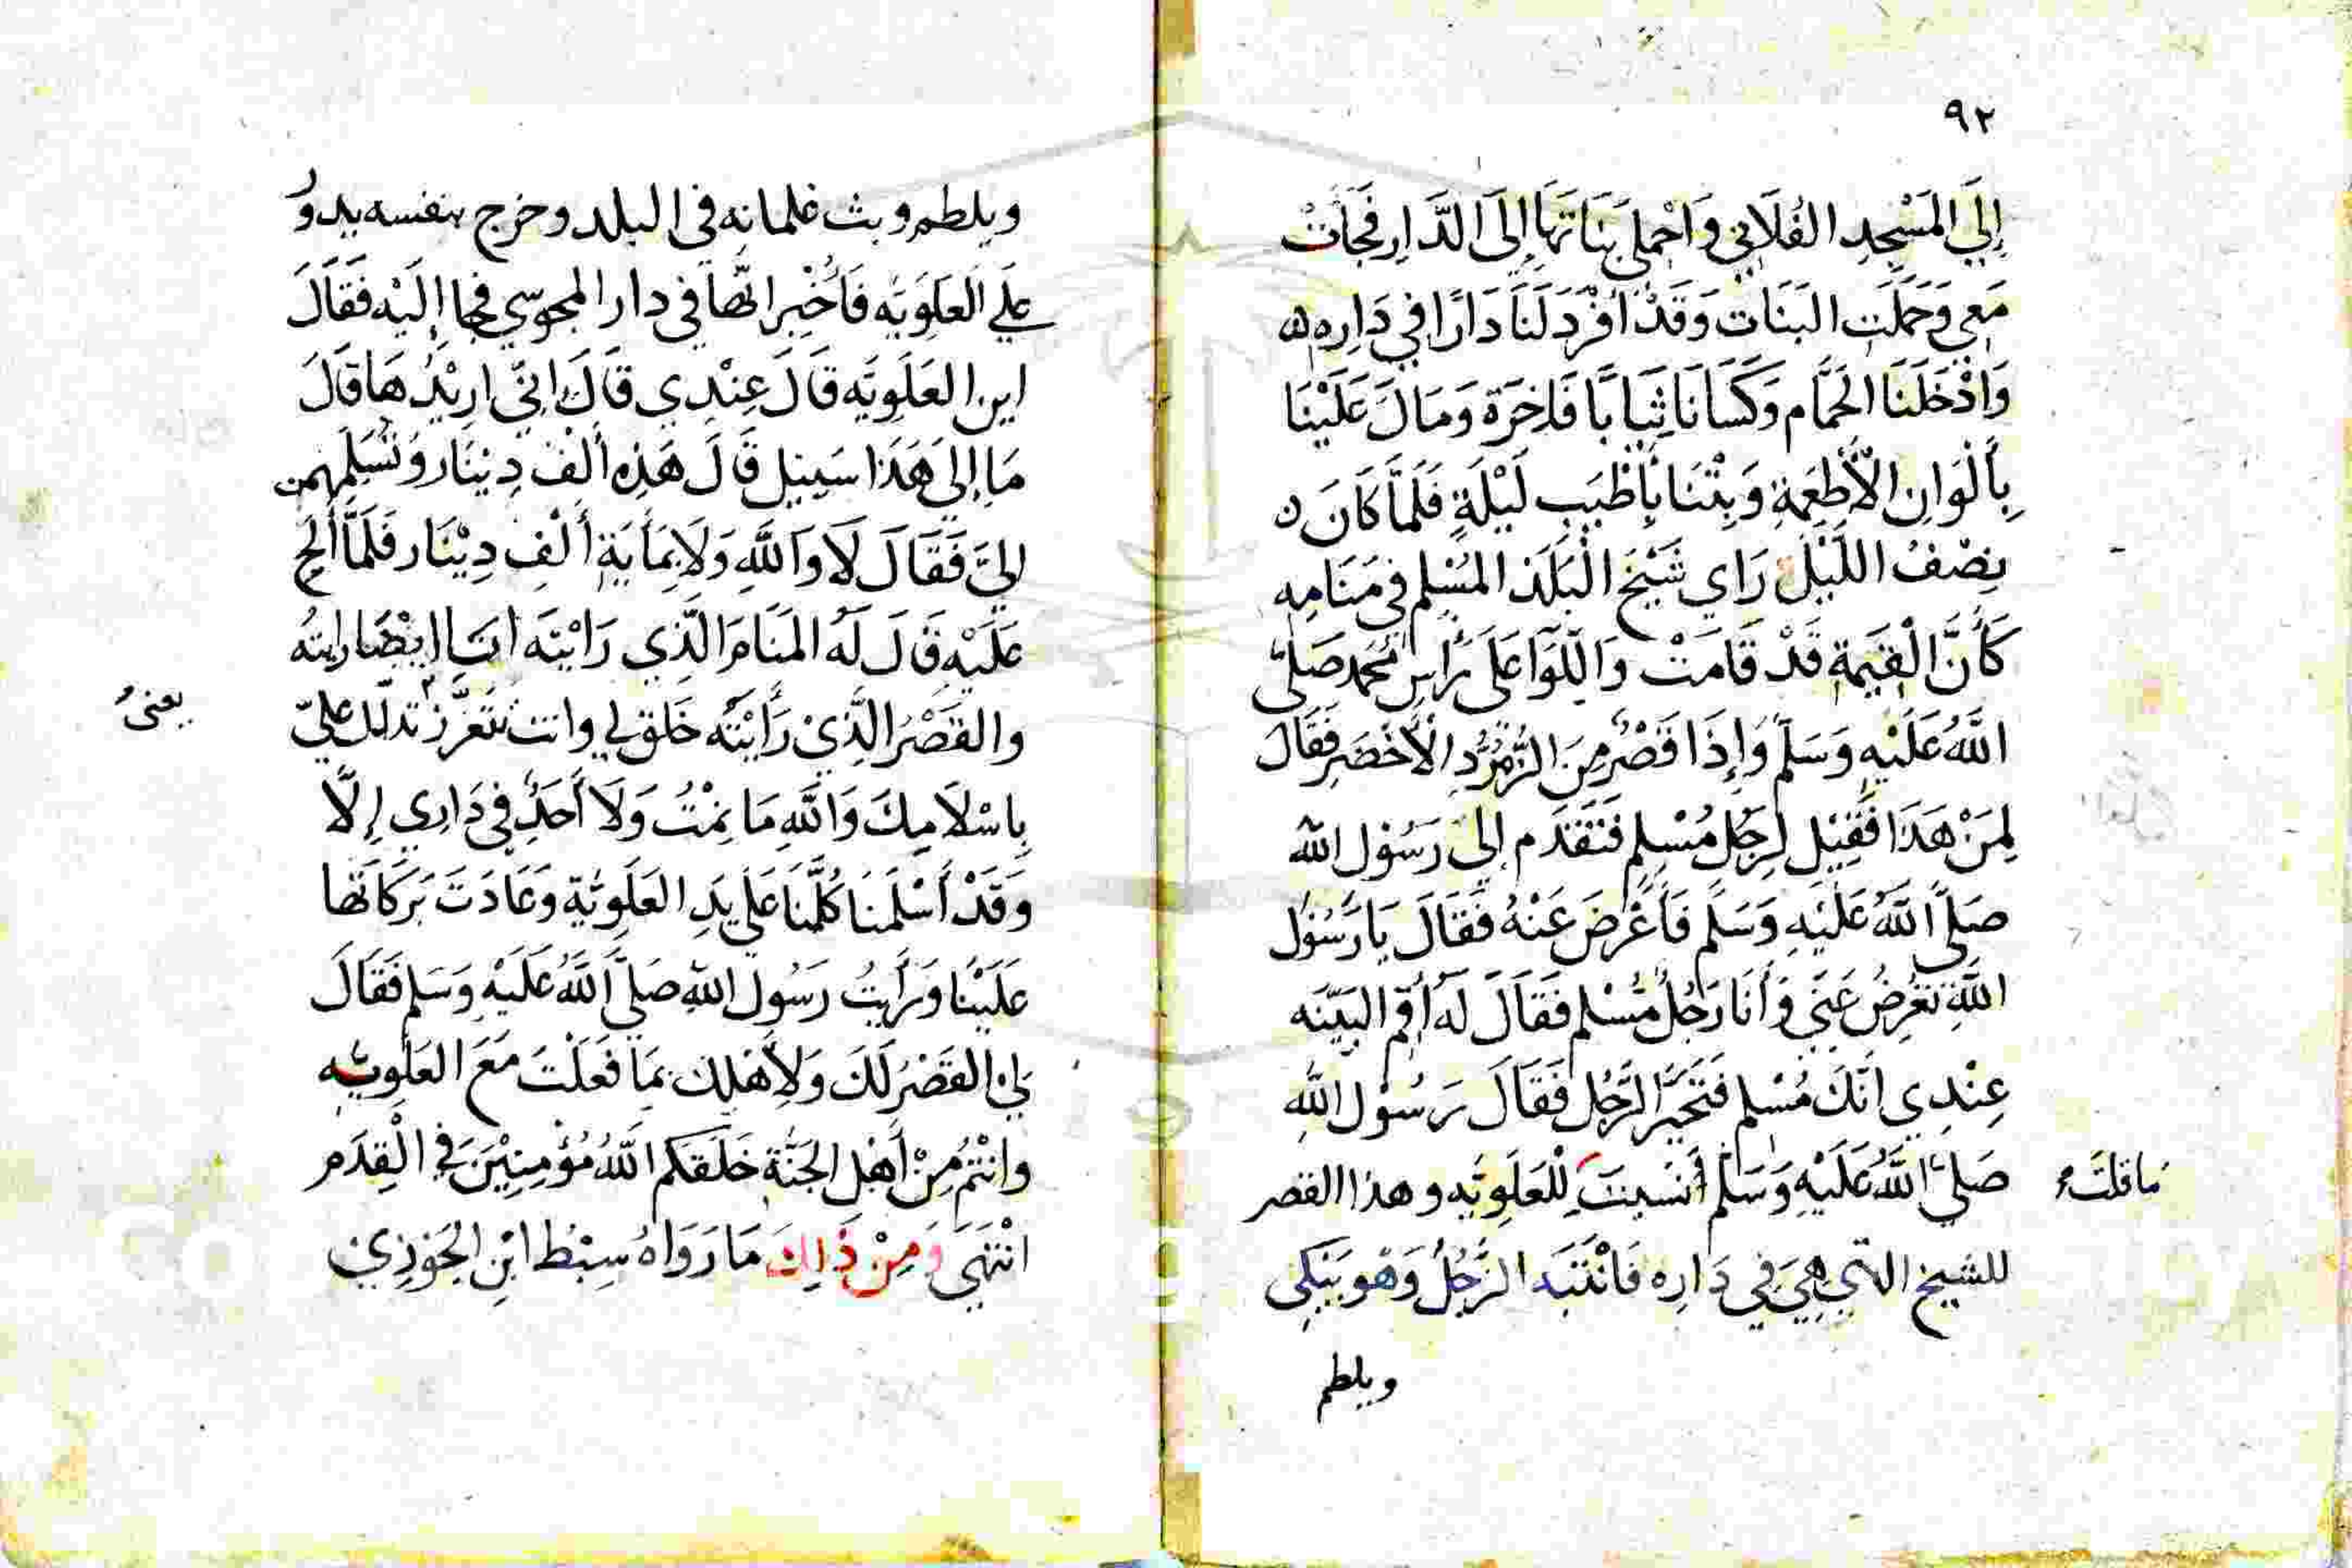 ٩٢
إِلَي المَسْجِدِ الفُلَانِي وَاحْملِي بَنَاتهَا إِلَى الدَّارِ فَجَأَتْ
مَعِي وَحَمَلَتِ البَنَات وَقَدْ أَفْرَدَ لَنَا دَارًا فِي دَارِه
وَادْخَلَنَا الحَمَّام وَكَسَانَا ثِيَابًا فَاخِرَة وَمَالَ عَلَيْنَا
بِأَلْوَانِ الأَطْعِمَةِ وَبِتْنَا بِأَطْيَبِ لَيْلَةٍ فَلَمَّا كَانَ
نِصْفُ اللَّيْلِ رَاي شَيْخَ البَلَد المُسْلِم فِي مَنَامِهِ
كَأَنَّ الْقِيَمَة قَدْ قَامَتْ وَاللِّوَا عَلَى رَأسِ مُحَمد صَلَّى
اللَّهُ عَلَيْهِ وَسَلَّم وَإِذَا قَصْرٌ مِنَ الزُّمُرُّدِ الأَخْضَرِ فَقَالَ
لِمَنْ هَذَا فَقِيْلَ لِرَجُلٍ مُسْلِمٍ فَتَقَدَّم إِلَى رَسُوْلِ اللَّه
صَلَّى اللَّهُ عَلَيْهِ وَسَلَّم فَأَعْرَضَ عَنْهُ فَقَالَ يَا رَسُوْل
اللَّهِ تُعْرِضُ عَنِّي وَأَنَا رَجُلٌ مُسْلِم فَقَالَ لَهُ أَقِم البَيِّنَه
عِنْدِي أَنَّكَ مُسْلِم فَتَحَيَّرَ الرَّجُل فَقَالَ رَسُوْل اللَّهِ
صَلَى اللَّهُ عَلَيْهِ وَسَلَّم أَنَسِيتَ لِلْعَلَوِيَّه وهذا القصر
ما قلتَ
للشيخ الذي هِيَ فِي دَارِه فَانْتَبَه الرَّجُلُ وَهْوَ يَبْكِى
ويلطم
ويلطم وبث غلمانه في البلد وخرج بنفسه يدوُر
علَي العَلَوِيَّه فَأُخْبِرَ انَّهَا في دار المجوسي فجاا إِلَيْه فَقَالَ
اين العَلَوِيَّه قَالَ عِنْدِي قَالَ انِّي ارِيْدُهَا قَالَ
مَا إِلَى هَذَا سَبِيل قَالَ هَذِه أَلْف دِينَار وَتُسَلِّمهم
اليَّ فَقَالَ لَا وَاللَّهِ وَلَا بِمَأيَةِ أَلْفِ دِيْنَار فَلَمَّا أَلَحّ
عَلَيْهِ قَالَ لَهُ المَنَام الَّذِي رَايْتَه انَا ايْضًا رايتُه
والقَصْرُ الَّذِيْ رَأَيْتَه خَلق لي وانت تَتَعَزَّز تدلل عليّ
يعنى
بِاسْلَامِكَ وَاللَّهِ مَا نِمْتُ وَلَا أَحَدٌ فِي دَارِي إِلَّا
وَقَدْ أَسْلَمْنَا كُلّنَا عَلَي يَدِ العَلَوِيَّة وَعَادَتَ بَرَكَاتهَا
عَلَيْنَا وَرَأَيتُ رَسُول اللَّهِ صَلَّى اللَّهُ عَلَيْهِ وَسَلم فَقَالَ
لِيَ القَصْرُ لَكَ وَلِأَهْلِكَ بِمَا فَعَلْتَ مَعَ العَلَوِيَّه
وانْتُم مِنْ أَهْلِ الجَنَّة خَلَقَكم اللَّهُ مُؤْمِنِيْنَ فِي الْقِدَم
انْتَهَى وَمِنْ ذَلِكَ مَا رَوَاهُ سِبْطُ ابْنِ الجَوْزِي